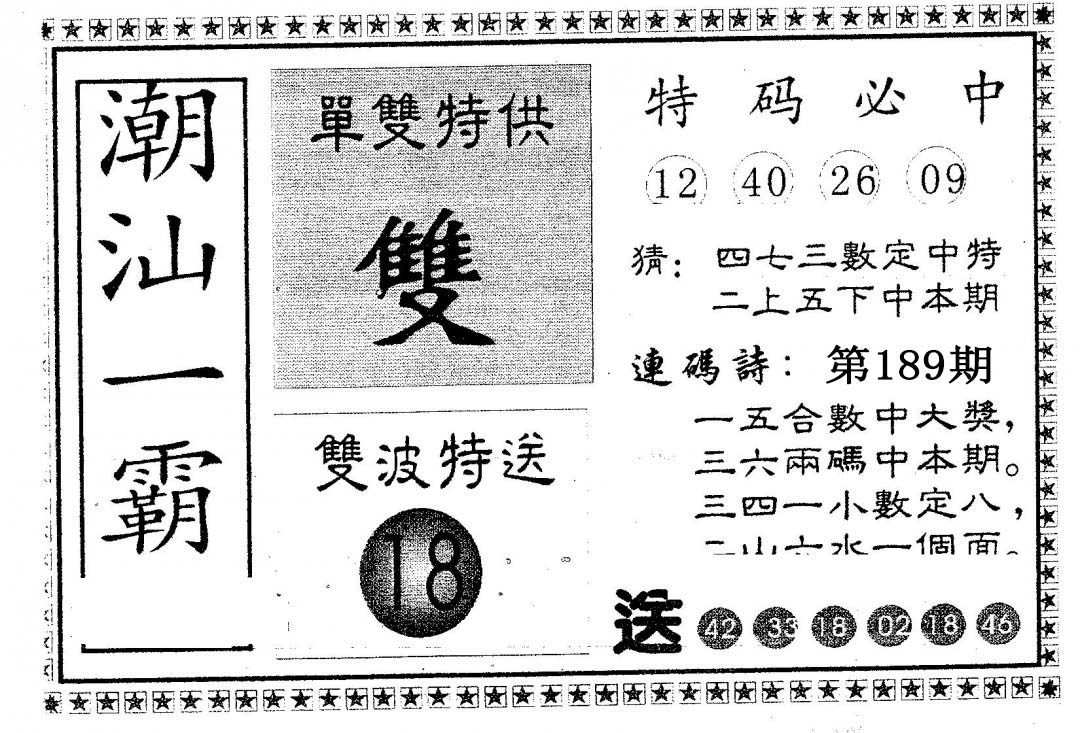 潮汕一霸
單雙特供
雙
雙波特送
18
特码必中
12 40 26 09
猜：四七三數定中特
二上五下中本期
連碼詩：第189期
一五合數中大獎，
三六兩碼中本期。
三四一小數定八，
二山六水一個面。
送 42 33 18 02 18 46